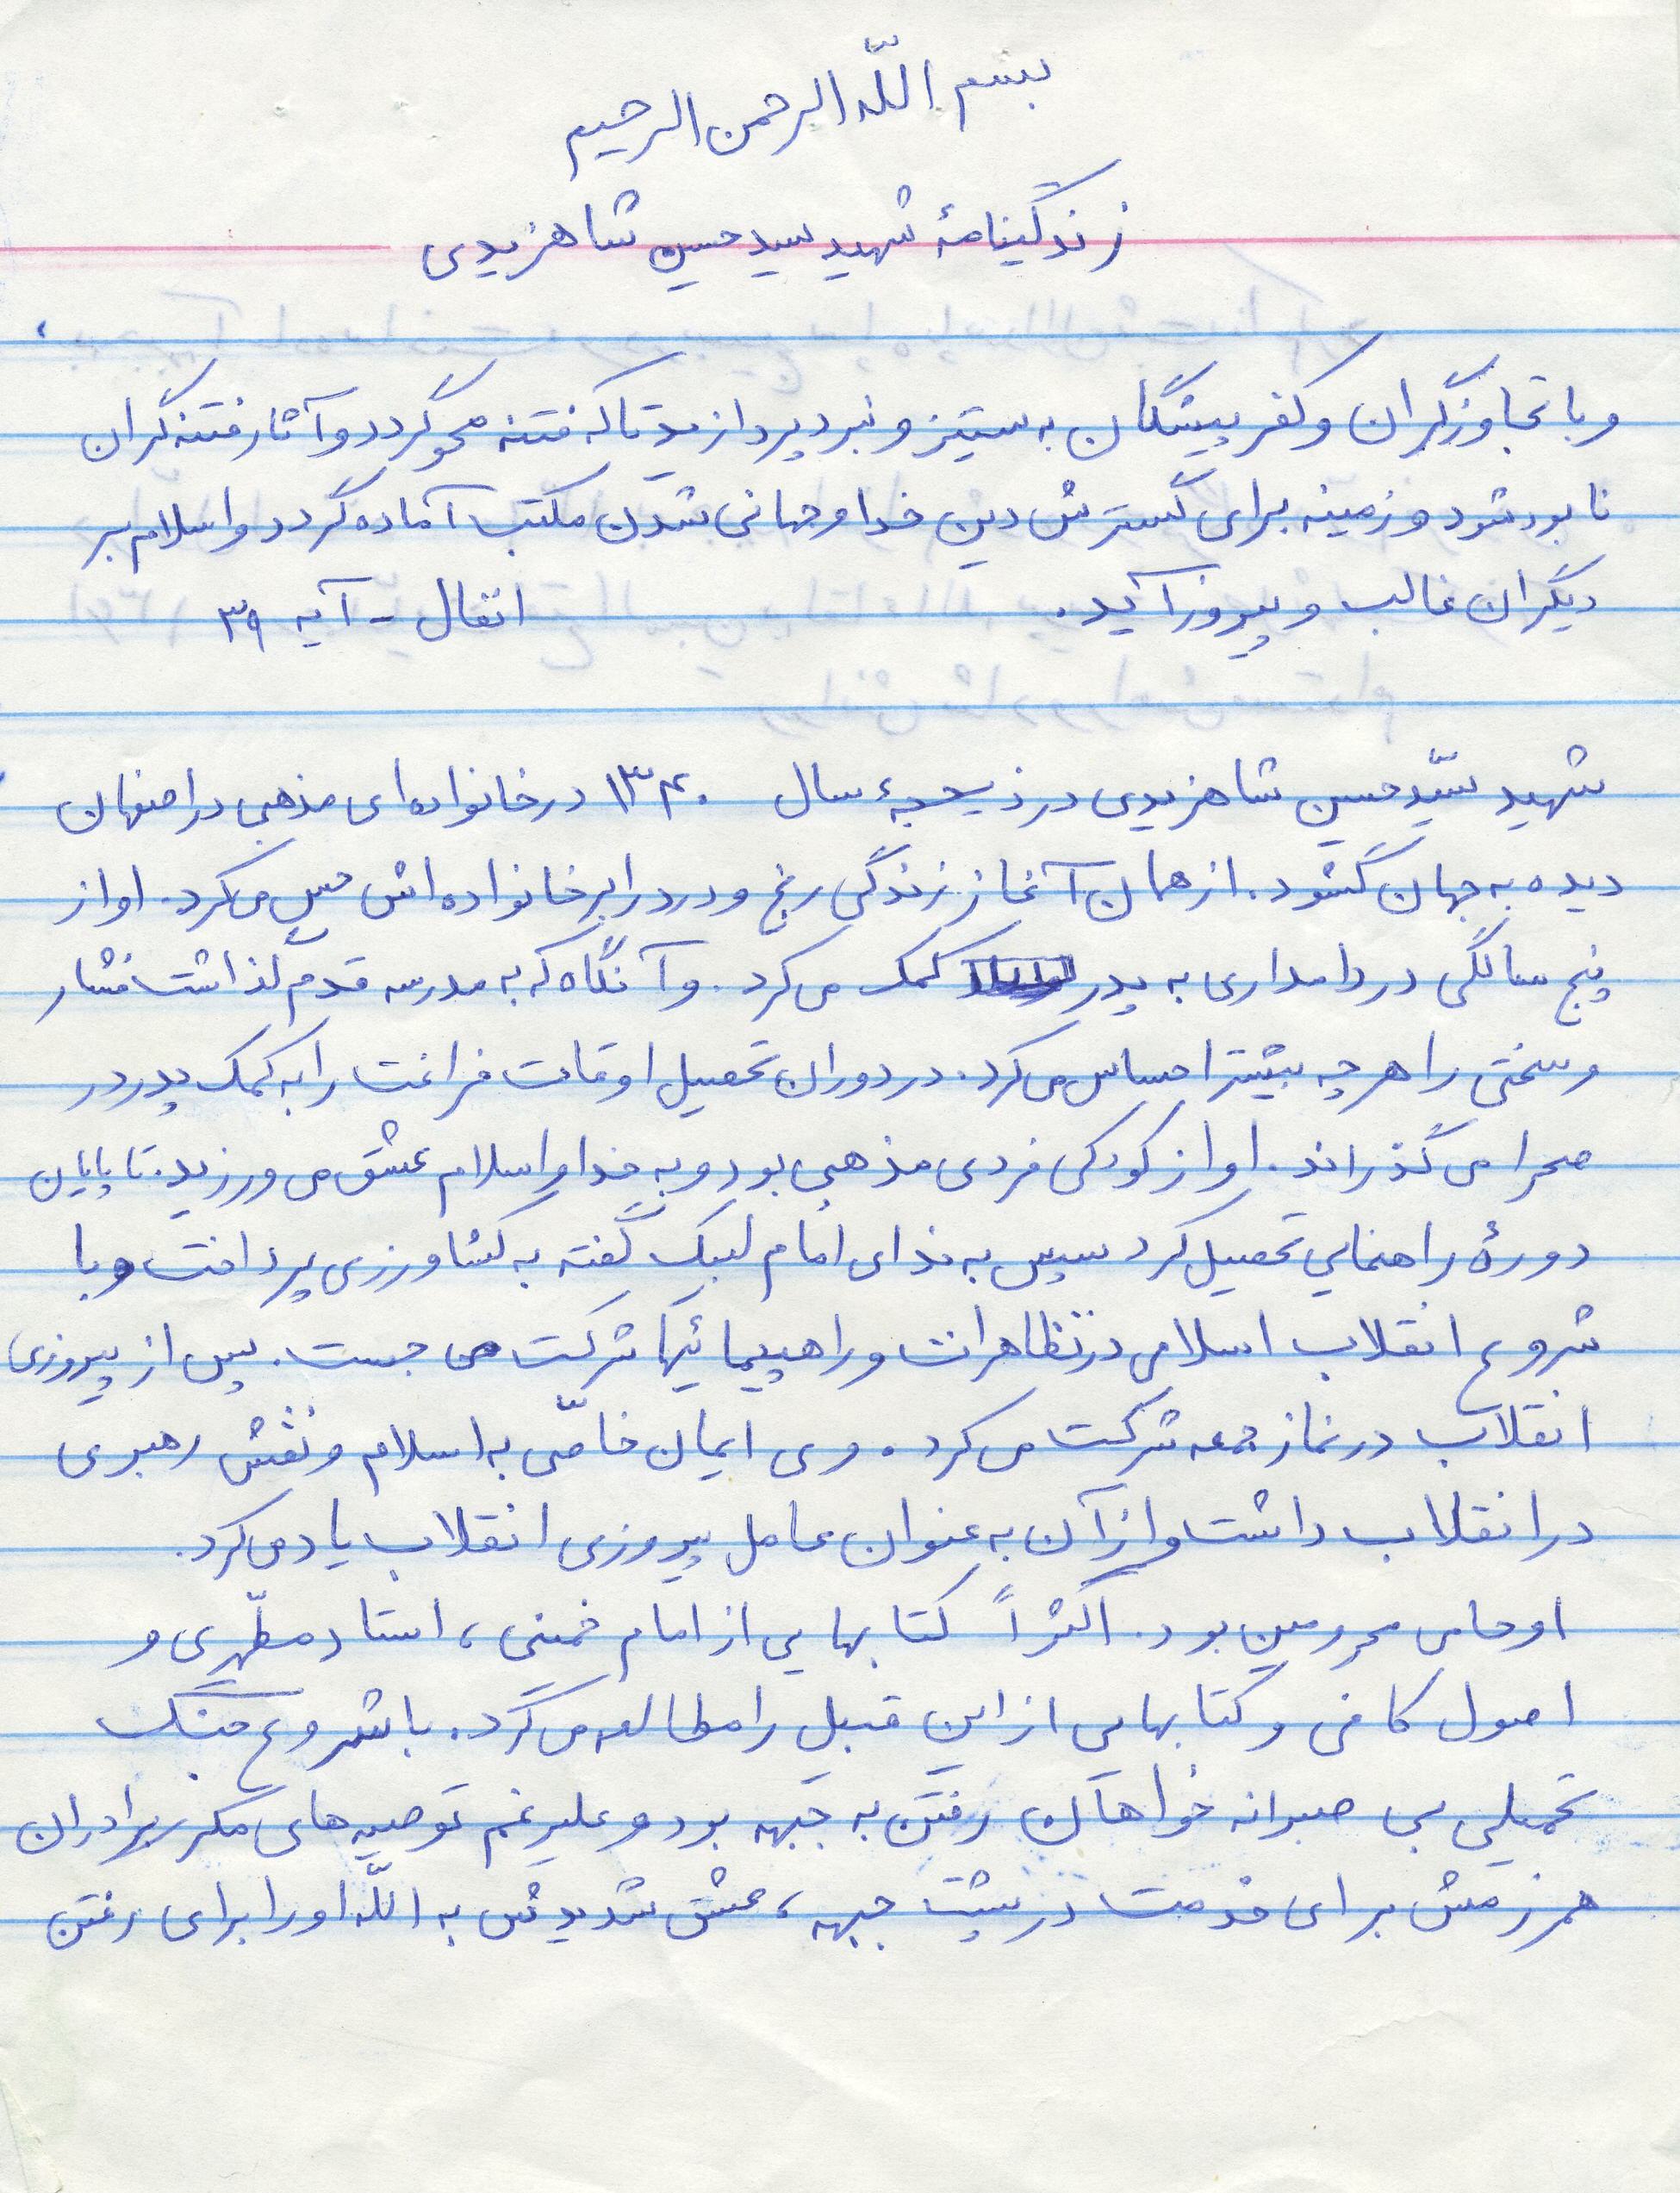 بسم اللّه الرحمن الرحیم
زندگینامهٔ شهید سید حسین شاهزیدی
و با تجاوزگران و کفر پیشگان به ستیز و نبرد پردازید تا که فتنه محو گردد و آثار فتنه گران
نابود شود و زمینه برای گسترش دین خدا و جهانی شدن مکتب آماده گردد و اسلام بر
دیگران غالب و پیروز آید. انفال - آیه ۳۹
شهید سیّد حسین شاهزیدی در ذیحجهٔ سال ۱۳۴۰ در خانواده‌ای مذهبی در اصفهان
دیده به جهان گشود. از همان آغاز زندگی رنج و درد را بر خانواده اش حس می‌کرد. او از
پنج سالگی در دامداری به پدر کمک می‌کرد. و آنگاه که به مدرسه قدم گذاشت فشار
و سختی را هر چه بیشتر احساس می‌کرد. در دوران تحصیل اوقات فراغت را به کمک پدر در
صحرا می گذراند. او از کودکی فردی مذهبی بود و به خدا و اسلام عشق می ورزید. تا پایان
دورهٔ راهنمایی تحصیل کرد سپس به ندای امام لبیک گفته به کشاورزی پرداخت و با
شروع انقلاب اسلامی در تظاهرات و راهپیمائیها شرکت می جست. پس از پیروزی
انقلاب در نماز جمعه شرکت می کرد. وی ایمان خاصّی به اسلام و نقش رهبری
در انقلاب داشت و از آن به عنوان عامل پیروزی انقلاب یاد می‌کرد.
او حامی محرومین بود. اکثراً کتابهایی از امام خمینی، استاد مطهّری و
اصول کافی و کتابهایی از این قبیل را مطالعه می‌کرد. با شروع جنگ
تحمیلی بی صبرانه خواهان رفتن به جبهه بود و علیرغم توصیه های مکرر برادران
همرزمش برای خدمت در پشت جبهه، عشق شدیدش به اللّه او را برای رفتن